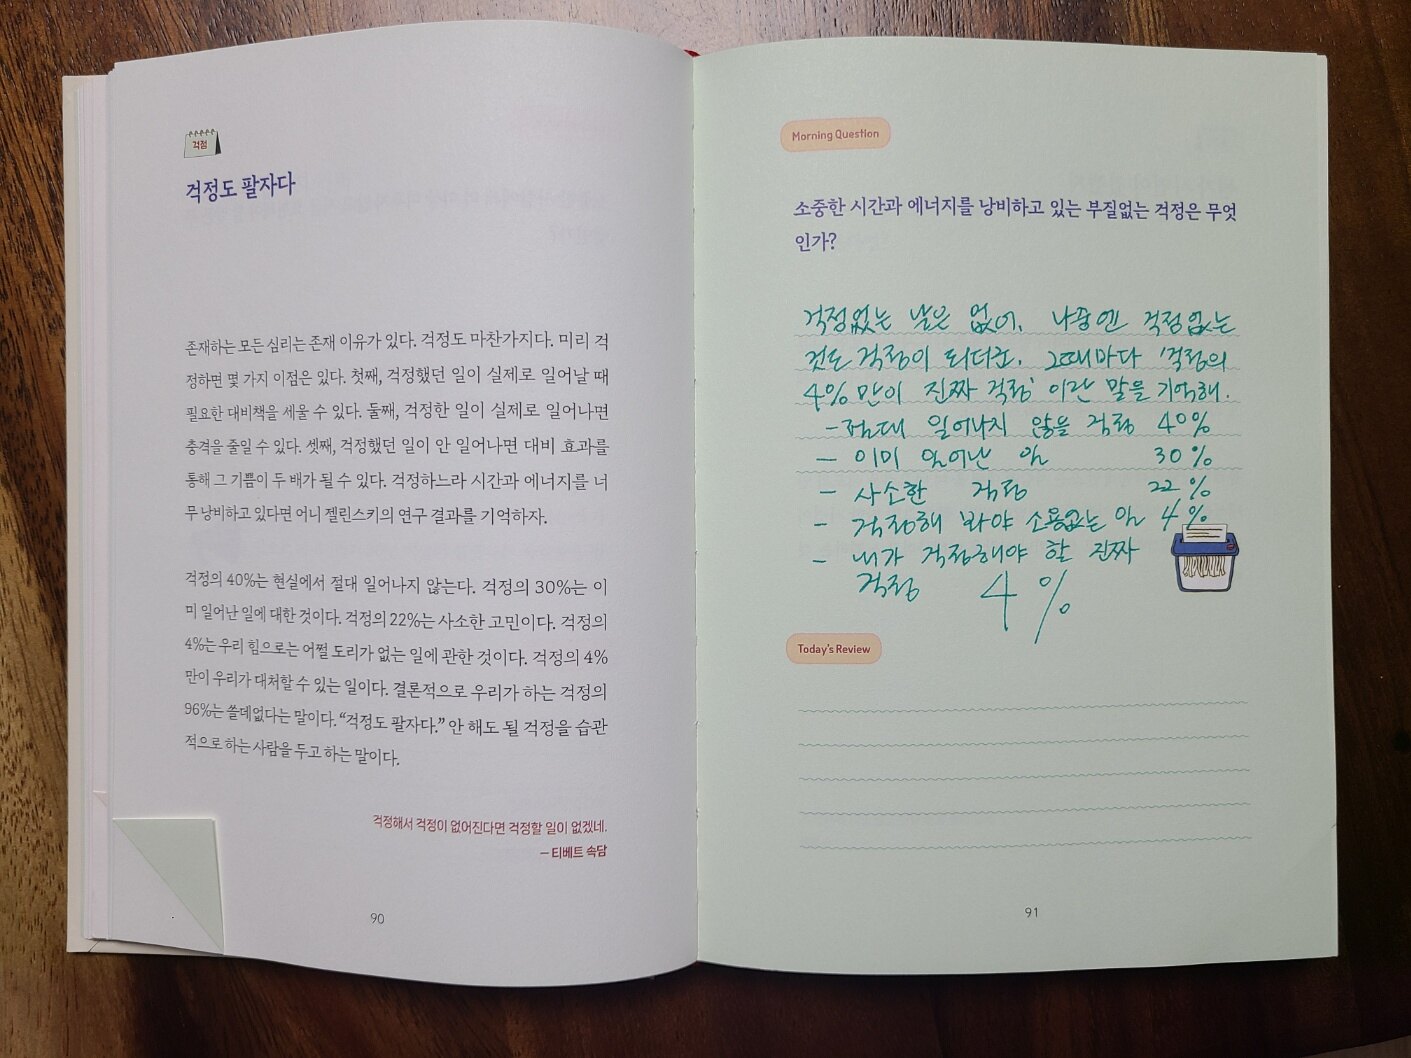 걱정
걱정도 팔자다
존재하는 모든 심리는 존재 이유가 있다. 걱정도 마찬가지다. 미리 걱
정하면 몇 가지 이점은 있다. 첫째, 걱정했던 일이 실제로 일어날 때
필요한 대비책을 세울 수 있다. 둘째, 걱정한 일이 실제로 일어나면
충격을 줄일 수 있다. 셋째, 걱정했던 일이 안 일어나면 대비 효과를
통해 그 기쁨이 두 배가 될 수 있다. 걱정하느라 시간과 에너지를 너
무 낭비하고 있다면 어니 젤린스키의 연구 결과를 기억하자.
걱정의 40%는 현실에서 절대 일어나지 않는다. 걱정의 30%는 이
미 일어난 일에 대한 것이다. 걱정의 22%는 사소한 고민이다. 걱정의
4%는 우리 힘으로는 어쩔 도리가 없는 일에 관한 것이다. 걱정의 4%
만이 우리가 대처할 수 있는 일이다. 결론적으로 우리가 하는 걱정의
96%는 쓸데없다는 말이다. “걱정도 팔자다.” 안 해도 될 걱정을 습관
적으로 하는 사람을 두고 하는 말이다.
걱정해서 걱정이 없어진다면 걱정할 일이 없겠네.
– 티베트 속담
90
Morning Question
소중한 시간과 에너지를 낭비하고 있는 부질없는 걱정은 무엇
인가?
걱정없는 날은 없어. 나중엔 걱정없는
것도 걱정이 되더군. 그때마다 '걱정의
4%만이 진짜 걱정' 이란 말을 기억해.
- 절대 일어나지 않을 걱정 40%
- 이미 일어난 일 30%
- 사소한 걱정 22%
- 걱정해 봐야 소용없는 일 4%
- 내가 걱정해야 할 진짜
걱정 4%
Today's Review
91